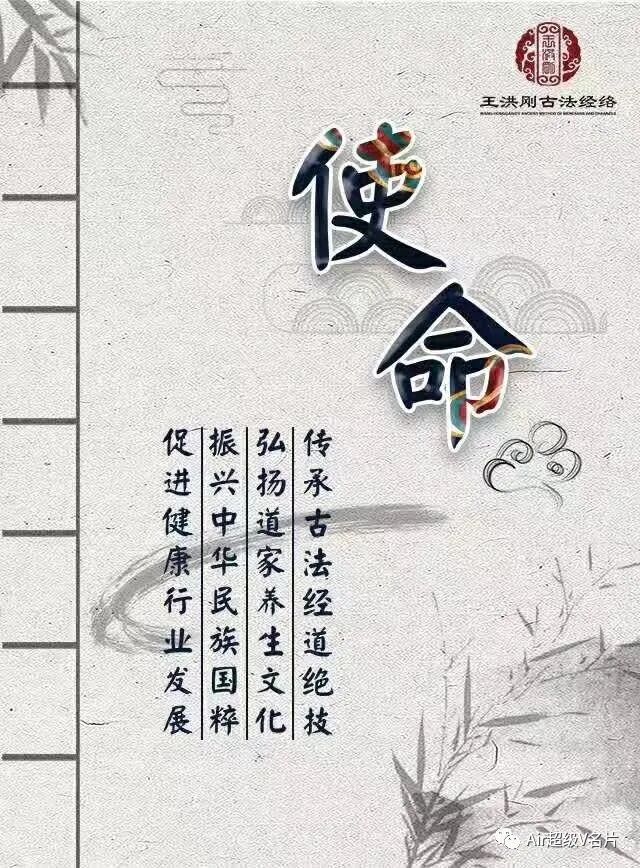 王洪刚古法经络
WANG HONGGANG'S ANCIENT METHOD OF MERIDIANS AND CHANNELS
使命
传承古法经道绝技
弘扬道家养生文化
振兴中华民族国粹
促进健康行业发展
Air超级V名片